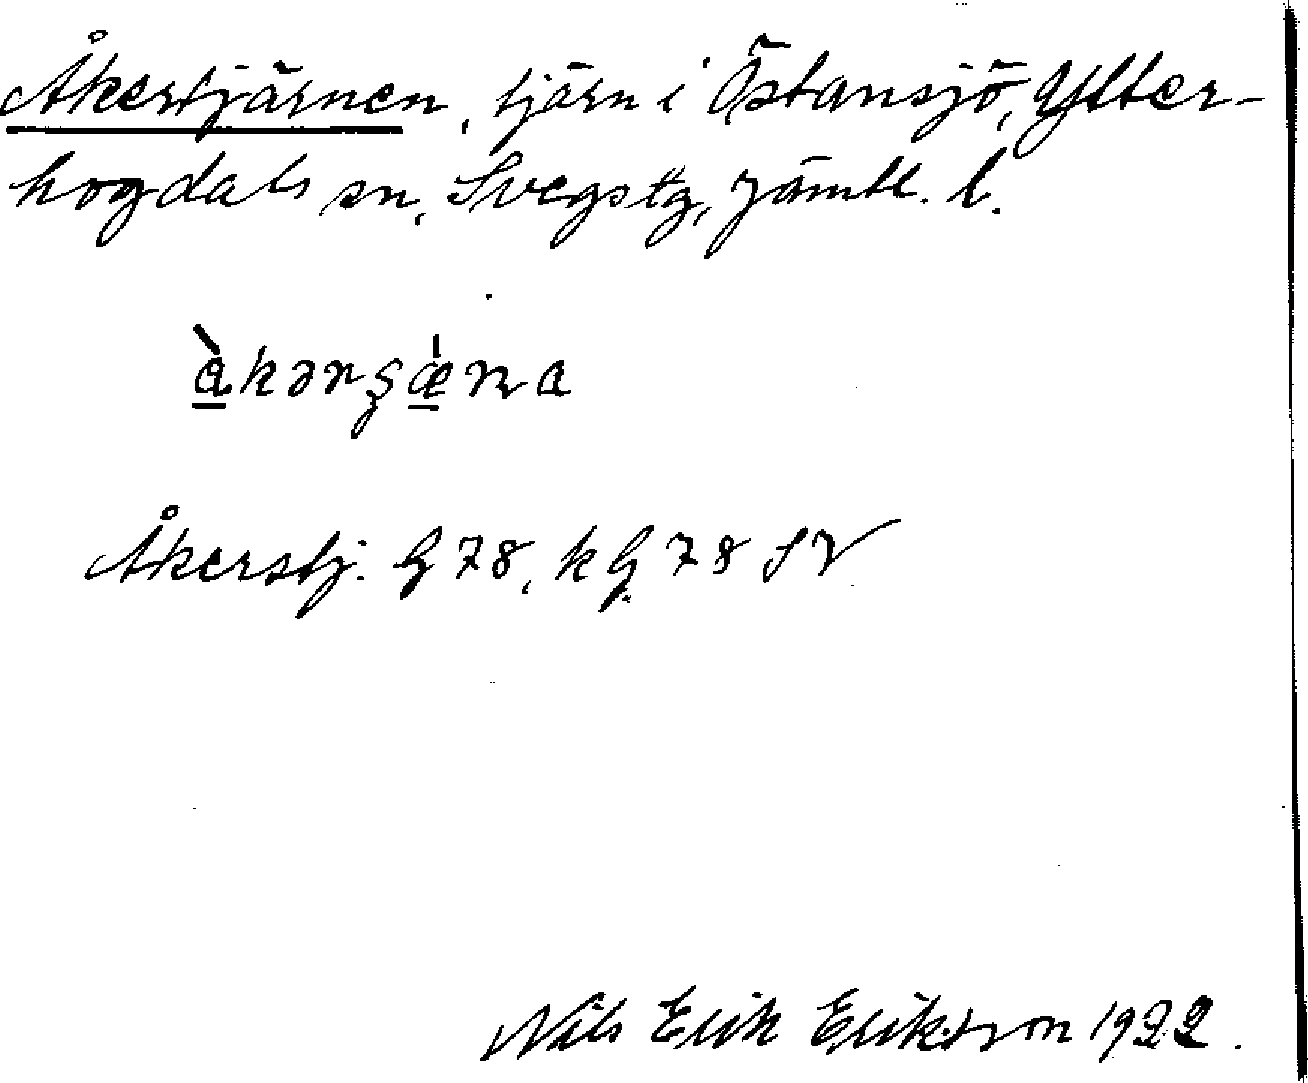 Åkertjärnen, tjärn i Östansjö, Ytter-
hogdals sn, Svegs tg, Jämtl. l.
Åkerstj. G 78, k G 78 SV
Nils Erik Eriksson 1922.